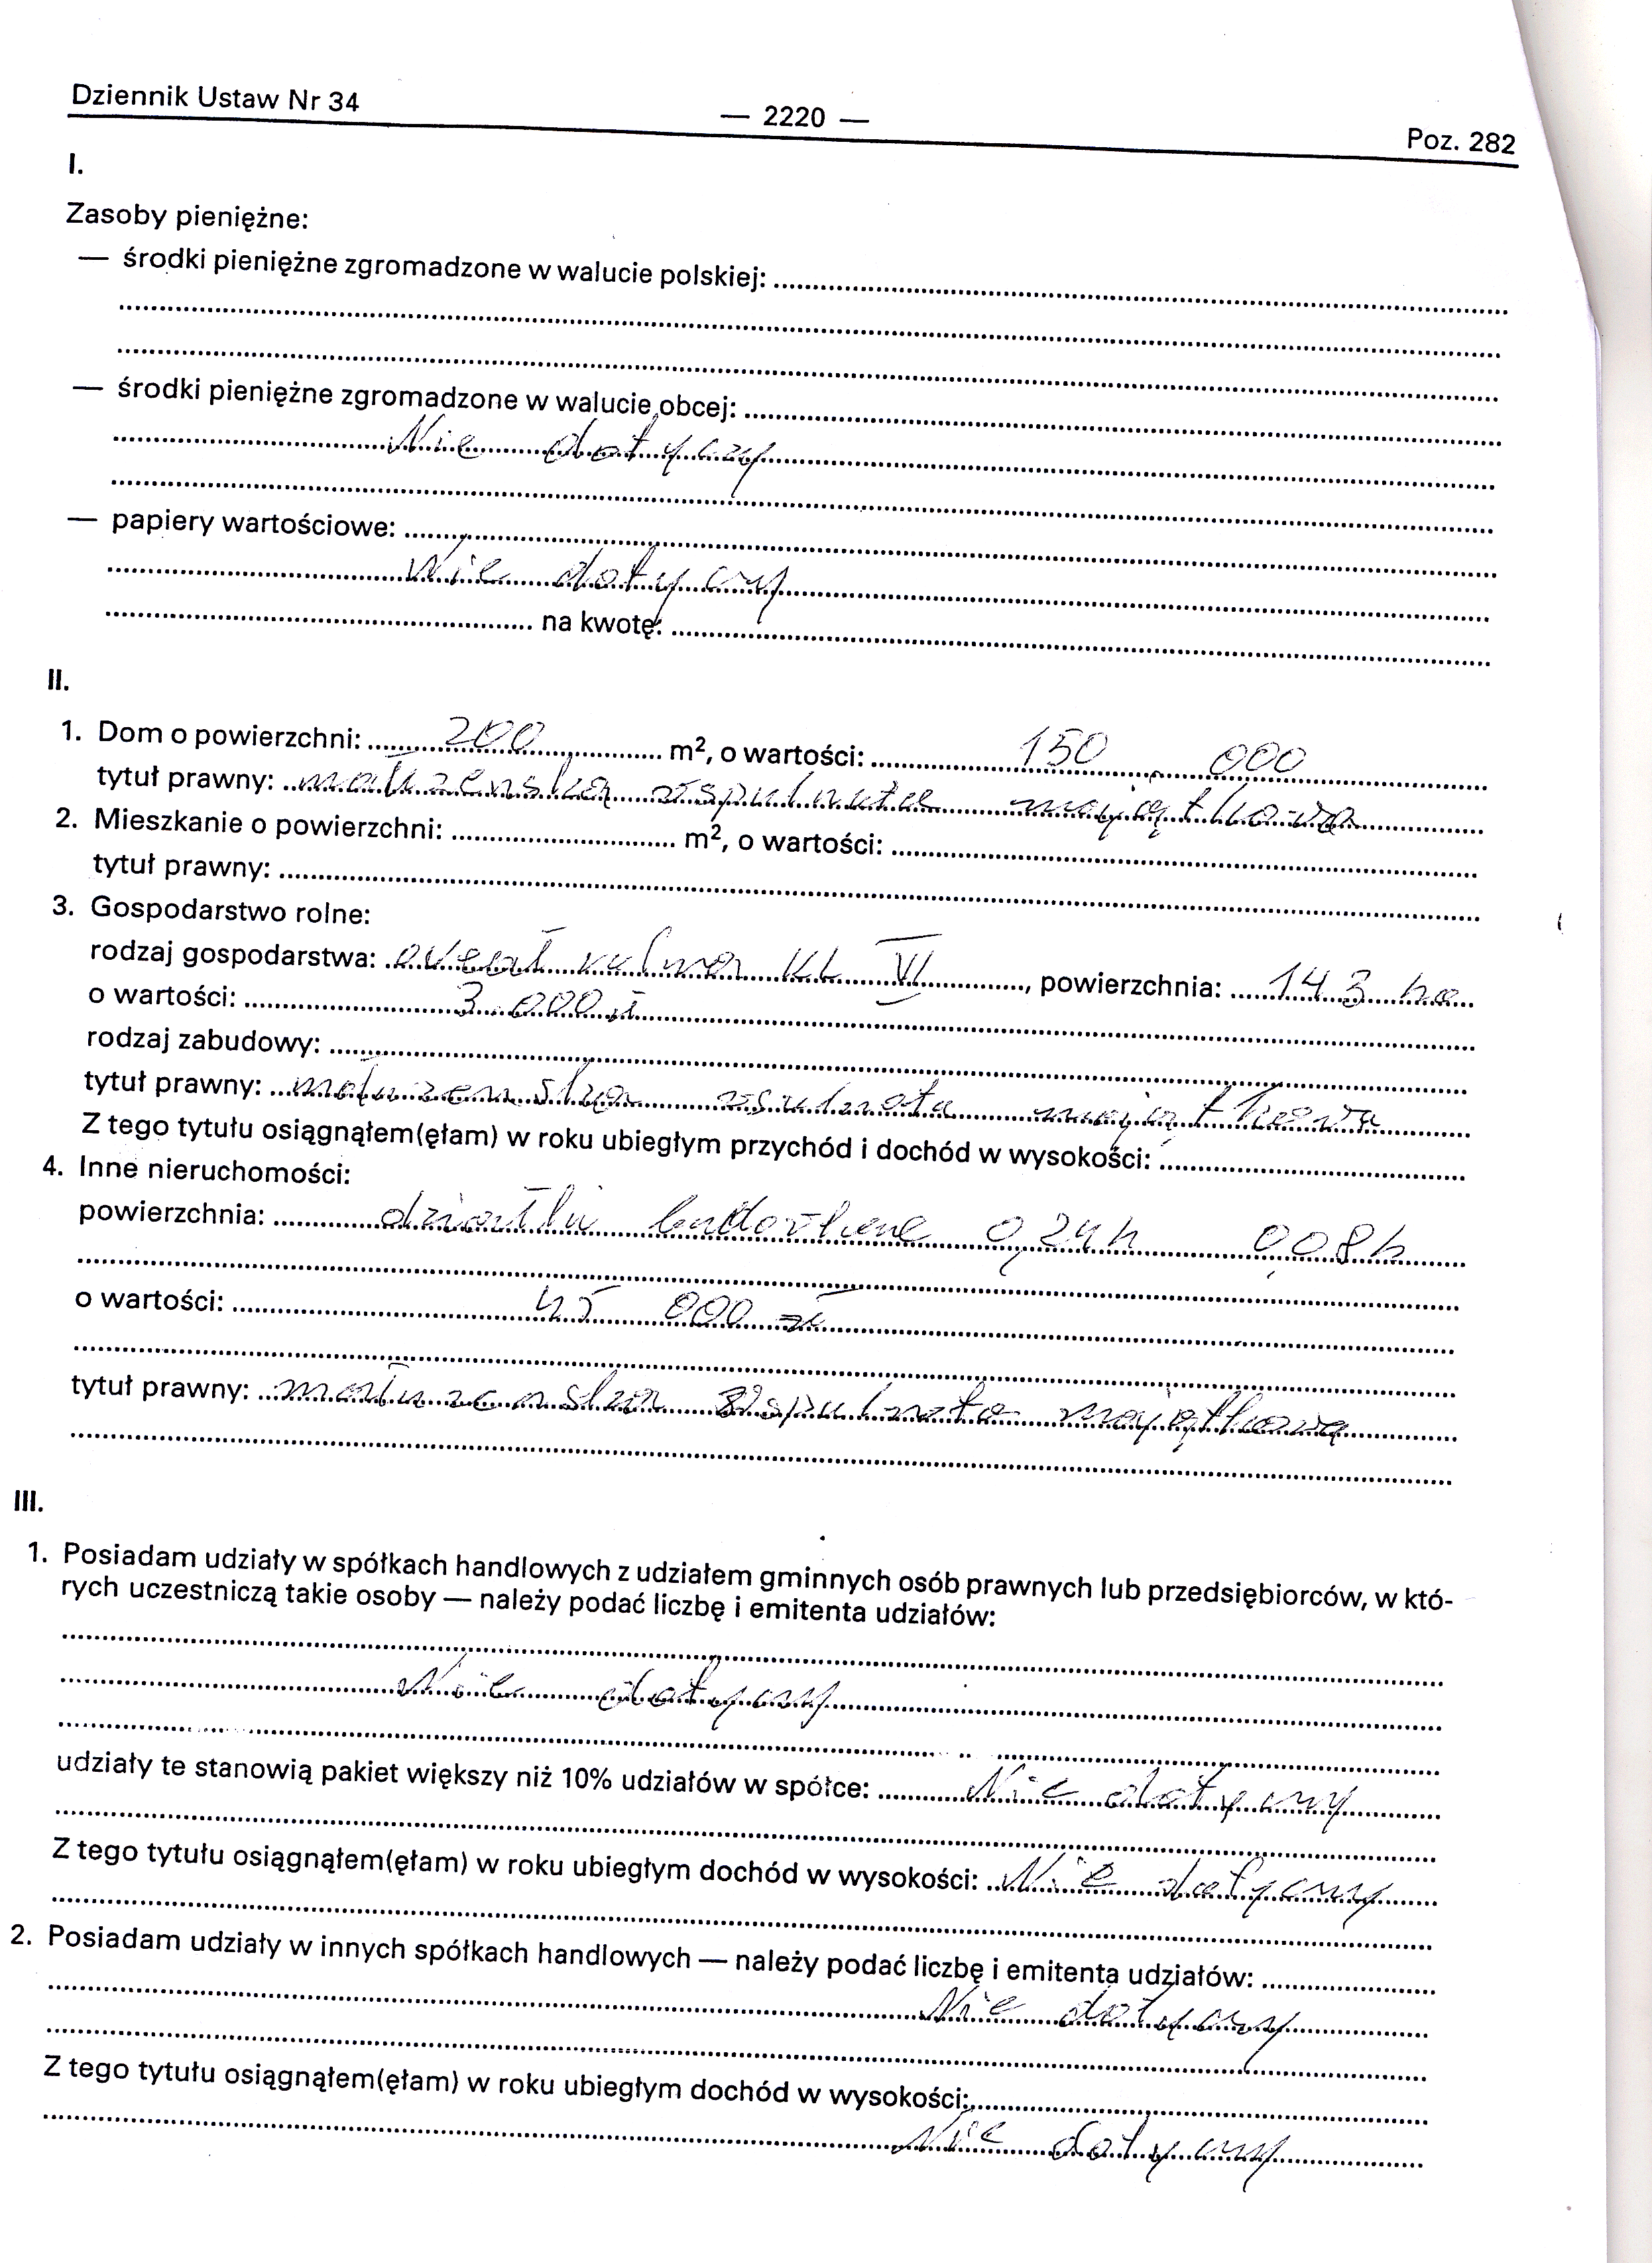 Dziennik Ustaw Nr 34 — 2220 — Poz. 282
I.
Zasoby pieniężne:
— środki pieniężne zgromadzone w walucie polskiej:
— środki pieniężne zgromadzone w walucie obcej:
Nie dotyczy
— papiery wartościowe:
Nie dotyczy
na kwotę:
II.
1. Dom o powierzchni: 200 m², o wartości: 150 000
tytuł prawny: małżeńska wspulnota majątkowa
2. Mieszkanie o powierzchni: m², o wartości:
tytuł prawny:
3. Gospodarstwo rolne:
rodzaj gospodarstwa: kl VI, powierzchnia: 143 ha
o wartości: 3 000 zł
rodzaj zabudowy:
tytuł prawny: majątkowa
Z tego tytułu osiągnąłem(ęłam) w roku ubiegłym przychód i dochód w wysokości:
4. Inne nieruchomości:
powierzchnia: działki 0,24h 0,08h
o wartości: 45 000 zł
tytuł prawny: wspulnota majątkowa
III.
1. Posiadam udziały w spółkach handlowych z udziałem gminnych osób prawnych lub przedsiębiorców, w któ-
rych uczestniczą takie osoby — należy podać liczbę i emitenta udziałów:
Nie dotyczy
udziały te stanowią pakiet większy niż 10% udziałów w spółce: Nie dotyczy
Z tego tytułu osiągnąłem(ęłam) w roku ubiegłym dochód w wysokości: Nie dotyczy
2. Posiadam udziały w innych spółkach handlowych — należy podać liczbę i emitenta udziałów:
Nie dotyczy
Z tego tytułu osiągnąłem(ęłam) w roku ubiegłym dochód w wysokości:
Nie dotyczy